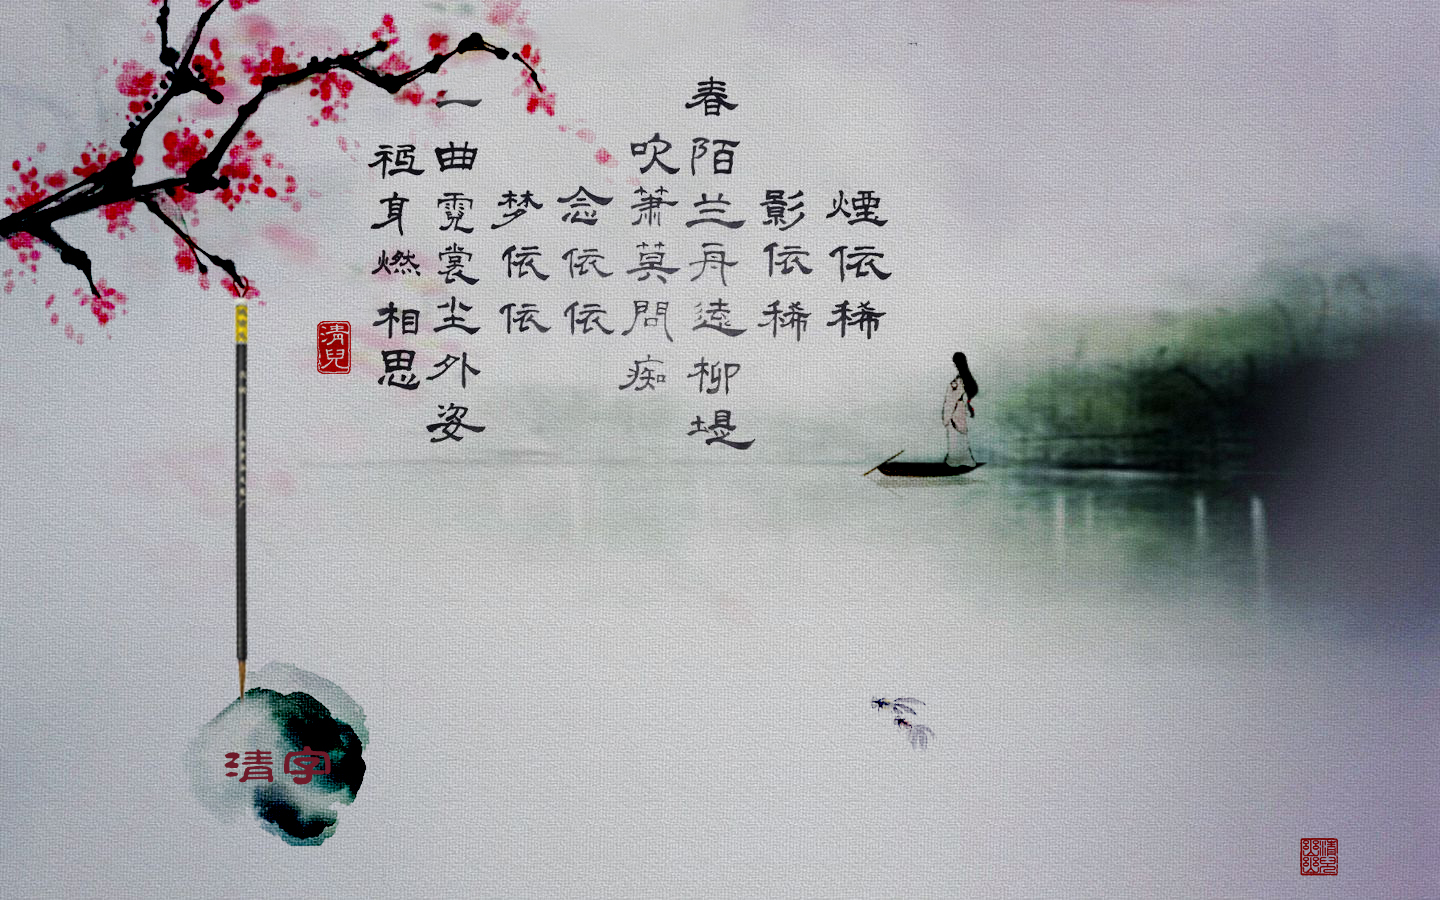 煙依稀
影依稀
春陌兰舟遠柳堤
吹箫莫問痴
念依依
梦依依
一曲霓裳尘外姿
祇身燃相思
清兒
清字